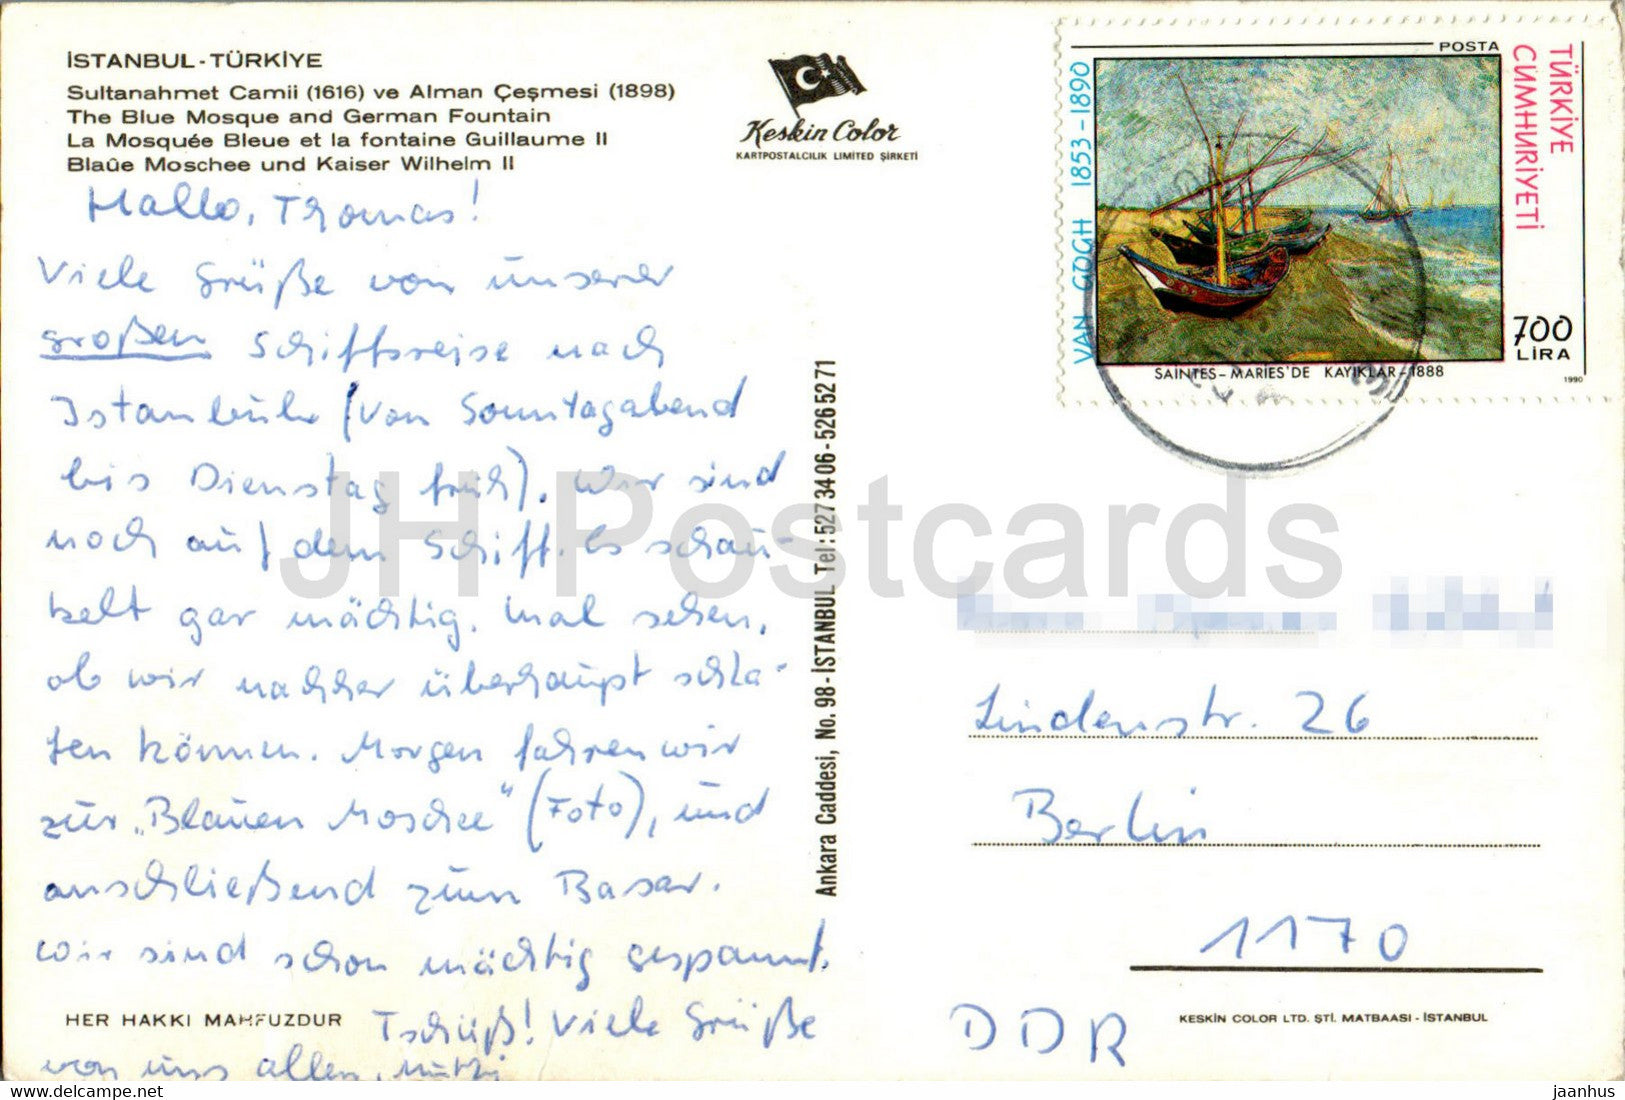 İSTANBUL - TÜRKİYE
Sultanahmet Camii (1616) ve Alman Çeşmesi (1898)
The Blue Mosque and German Fountain
La Mosquée Bleue et la fontaine Guillaume II
Blaûe Moschee und Kaiser Wilhelm II
Hallo, Thomas!
Viele Grüße von unserer
großen Schiffsreise nach
Istanbuhr (von Sonntagabend
bis Dienstag früh). Wir sind
noch auf dem Schiff. Es schau-
kelt gar mächtig. Mal sehen,
ob wir nachher überhaupt schla-
fen können. Morgen fahren wir
zur „Blauen Moschee" (Foto), und
anschließend zum Basar.
Wir sind schon mächtig gespannt.
Tschüß! Viele Grüße
von uns allen,
HER HAKKI MAHFUZDUR
Keskin Color
KARTPOSTALCILIK LIMITED ŞIRKETİ
Ankara Caddesi, No. 98 - İSTANBUL Tel: 527 34 06 - 526 52 71
POSTA
TÜRKİYE
CUMHURİYETİ
VAN GOGH 1853 - 1890
700
LİRA
SAINTES - MARIES'DE KAYIKLAR - 1888
1990
Lindenstr. 26
Berlin
1170
DDR
KESKİN COLOR LTD. ŞTİ. MATBAASI - İSTANBUL
JH Postcards
jaanhus © delcampe.net